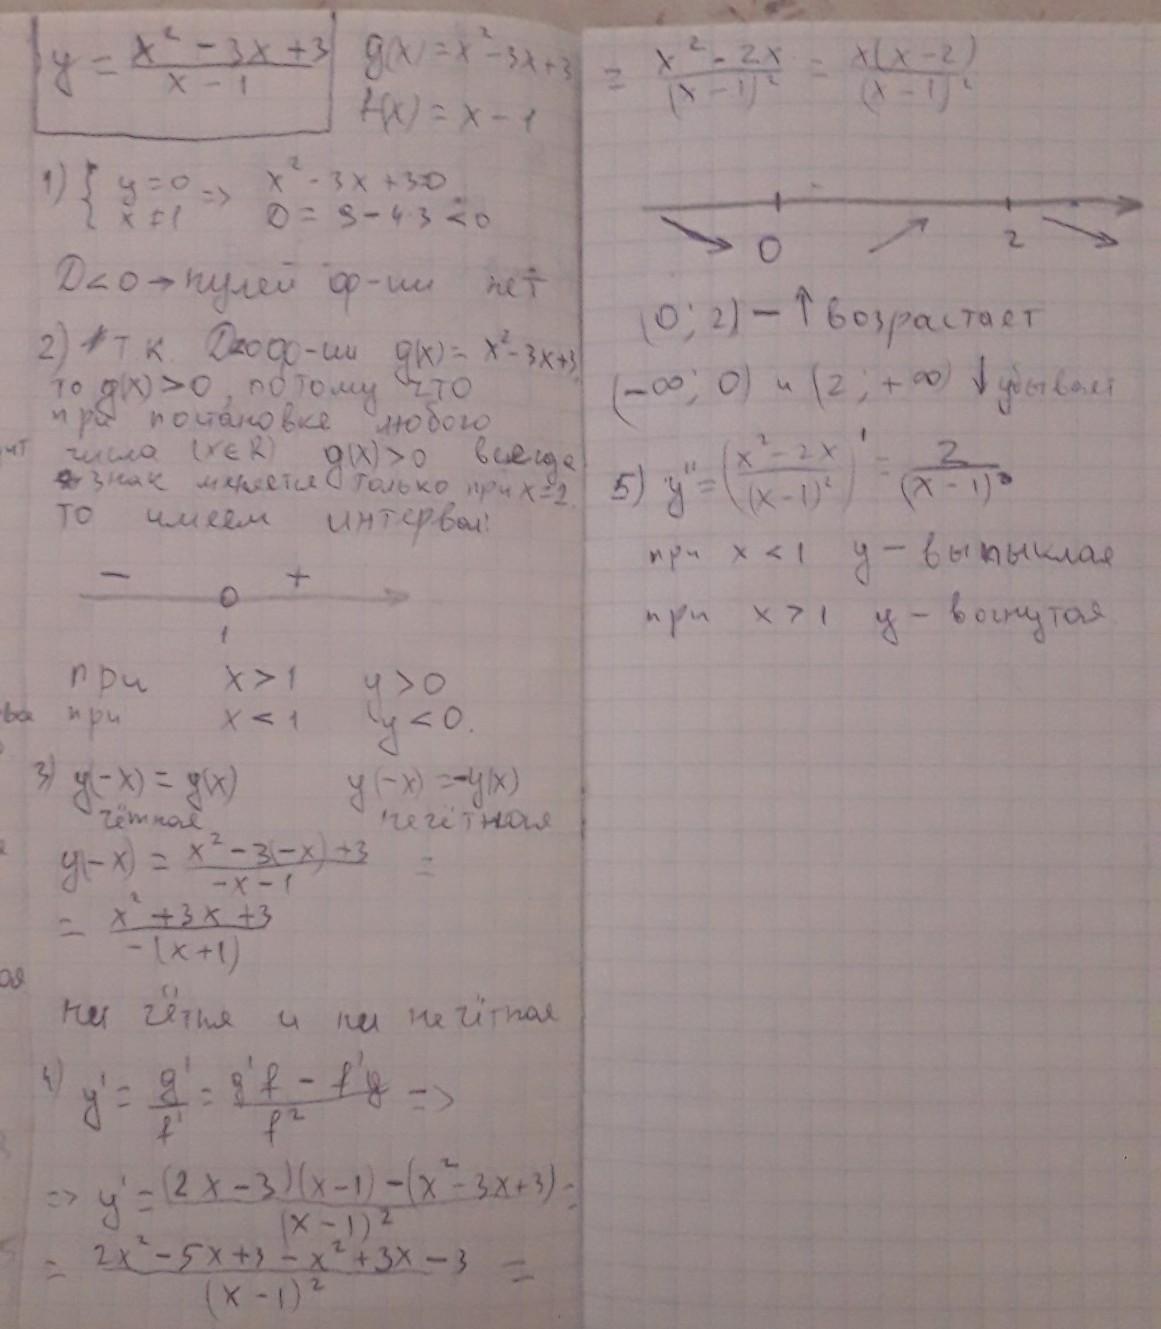 y = (x² - 3x + 3)/(x - 1)   g(x) = x² - 3x + 3
f(x) = x - 1
1) { y = 0 => x² - 3x + 3=0
{ x ≠ 1   D = 9 - 4·3 < 0
D < 0 → нулей ф-ии нет
2) т.к. D<0 ф-ии g(x) = x² - 3x + 3,
то g(x) > 0, потому что
при постановке любого
числа (x ∈ R) g(x) > 0 всегда
знак меняется только при x = 1.
то имеем интервал:
-   +
1
при x > 1 y > 0
при x < 1 y < 0.
3) y(-x) = y(x)   y(-x) = -y(x)
чётная   нечётная
y(-x) = (x² - 3(-x) + 3)/(-x - 1) =
= (x² + 3x + 3)/(-(x + 1))
ни чётня и ни нечётная
4) y' = g'/f' = (g'f - f'g)/f² =>
=> y' = ((2x - 3)(x - 1) - (x² - 3x + 3))/(x - 1)² =
= (2x² - 5x + 3 - x² + 3x - 3)/(x - 1)² =
= (x² - 2x)/(x - 1)² = x(x - 2)/(x - 1)²
0   2
(0; 2) - ↑ возрастает
(-∞; 0) и (2; +∞) ↓ убывает
5) y'' = ((x² - 2x)/(x - 1)²)' = 2/(x - 1)³
при x < 1 y - выпыклая
при x > 1 y - вогнутая